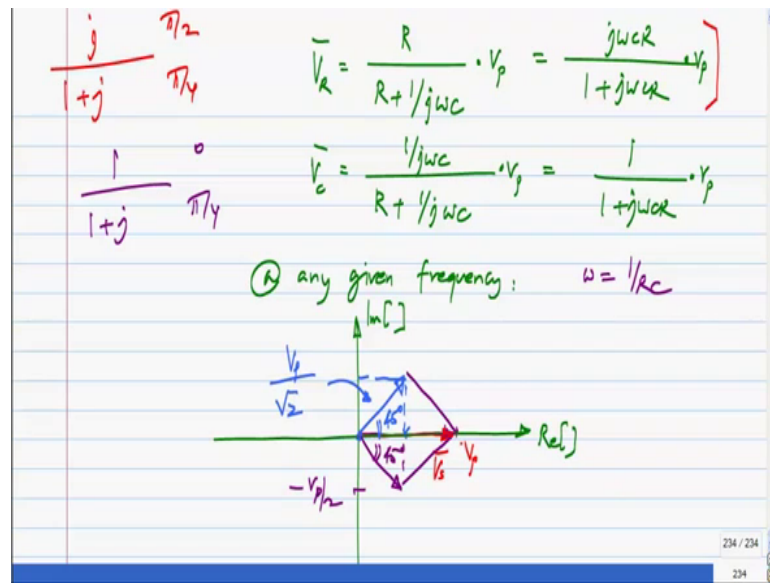 j/(1+j) π/2 π/4
V̄_R = R/(R + 1/jωC) · V_p = jωCR/(1 + jωCR) · V_p ]
1/(1+j) 0 π/4
V̄_c = (1/jωC)/(R + 1/jωC) · V_p = 1/(1 + jωCR) · V_p
@ any given frequency: ω = 1/RC
Im[ ]
V_p/√2
45°
Re[ ]
45°
V̄_s V_p
-V_p/2
234 / 234
234